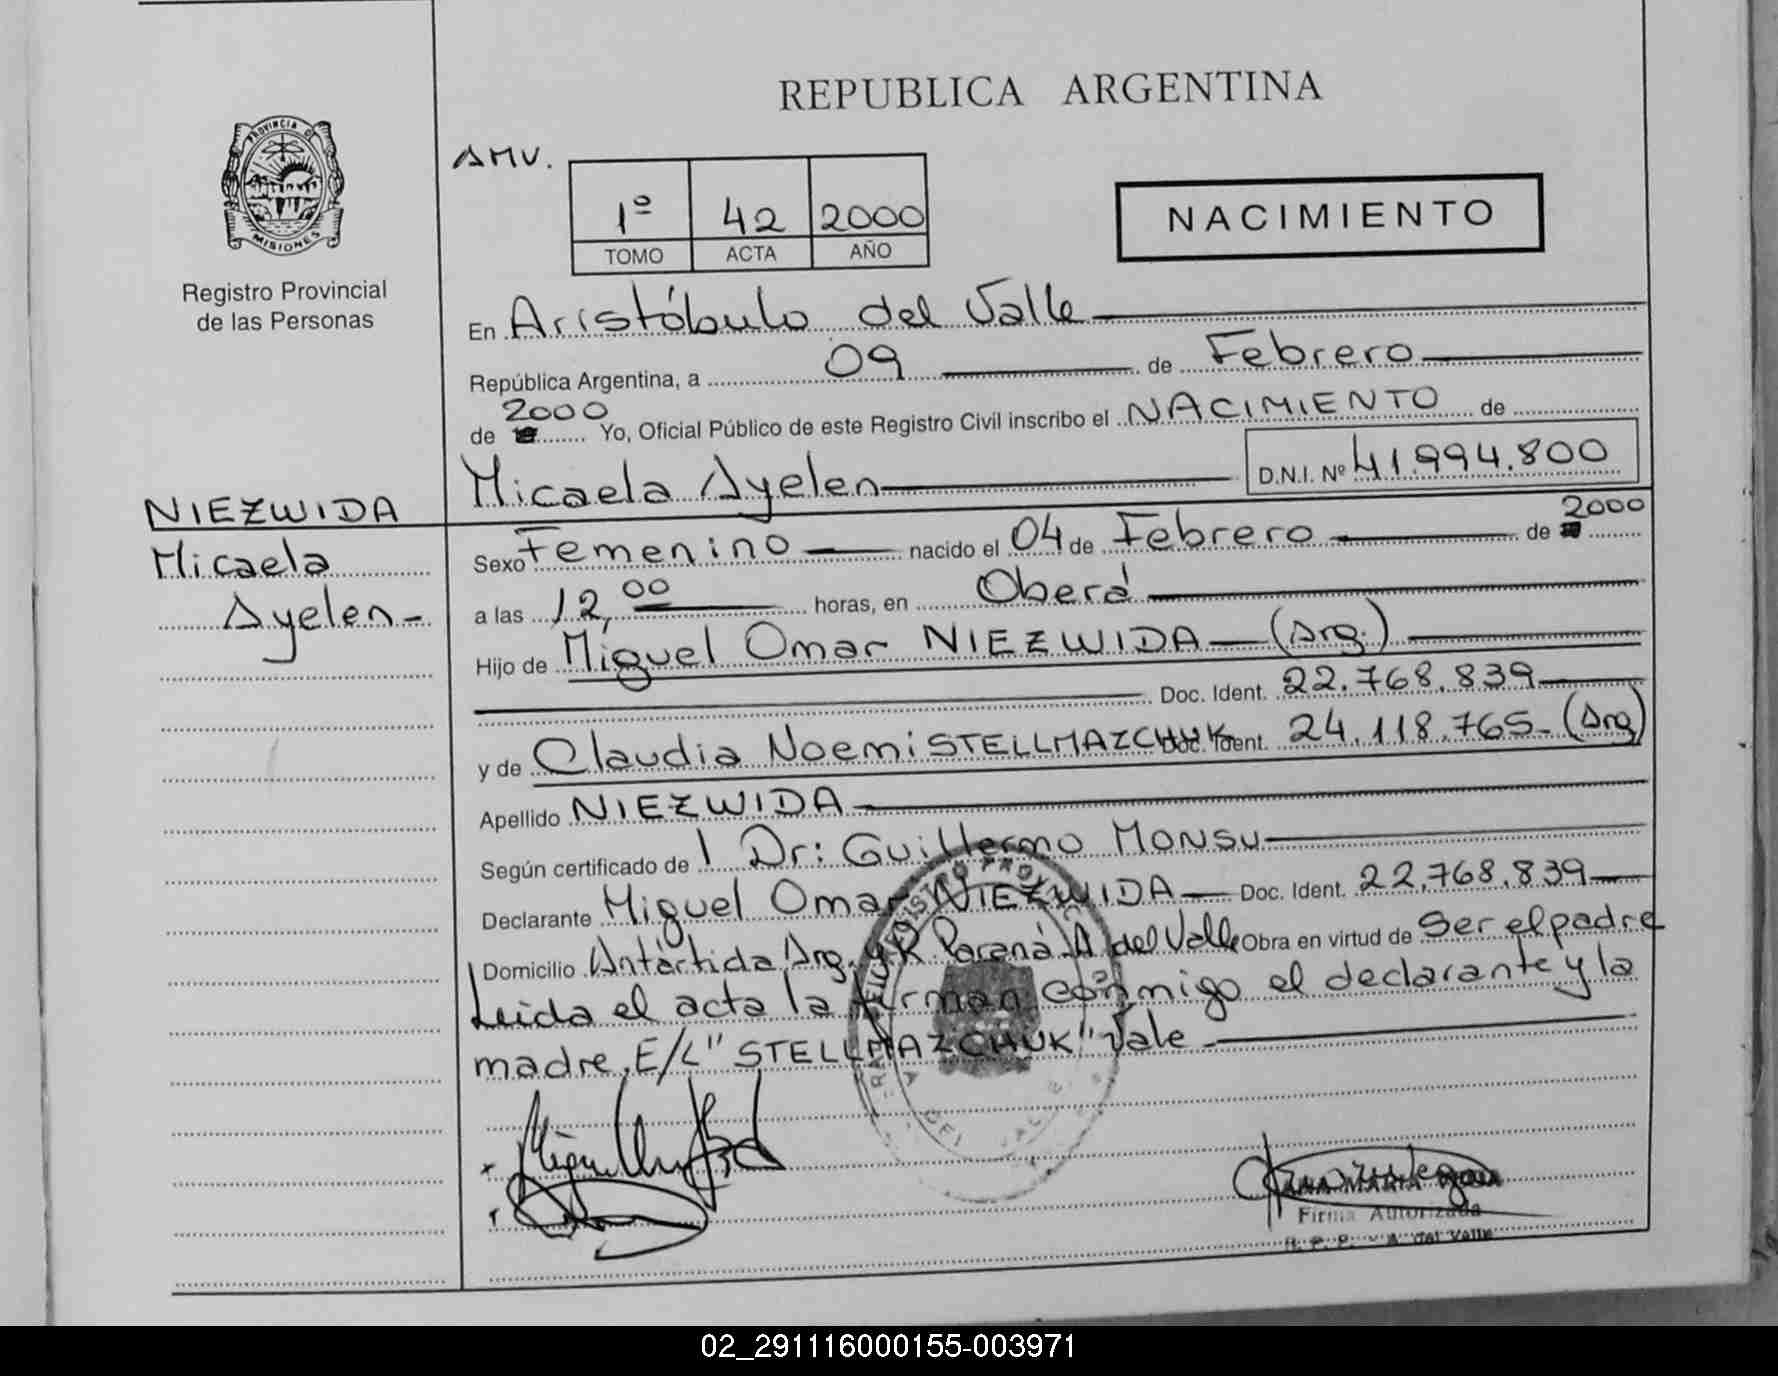 REPUBLICA ARGENTINA
PROVINCIA DE
MISIONES
Registro Provincial
de las Personas
AMV.
1º 42 2000
TOMO ACTA AÑO
NACIMIENTO
En Aristóbulo del Valle
República Argentina, a 09 de Febrero
de 2000 Yo, Oficial Público de este Registro Civil inscribo el NACIMIENTO de
Micaela Ayelen D.N.I. Nº 41.994.800
NIEZWIDA
Micaela
Ayelen-
Sexo Femenino nacido el 04 de Febrero de 2000
a las 12,00 horas, en Oberá
Hijo de Miguel Omar NIEZWIDA - (Arg.)
Doc. Ident. 22.768.839
y de Claudia Noemi STELLMAZCHUK Doc. Ident. 24.118.765- (Arg)
Apellido NIEZWIDA
Según certificado de Dr: Guillermo MONSU
Declarante Miguel Omar NIEZWIDA Doc. Ident. 22.768.839
Domicilio Antártida Arg. y R. Paraná A del Valle Obra en virtud de Ser el padre
Leida el acta la firman conmigo el declarante y la
madre, E/L "STELLMAZCHUK" Vale
ANA MARIA
Firma Autorizada
R. P. P. - A. del Valle
02_291116000155-003971